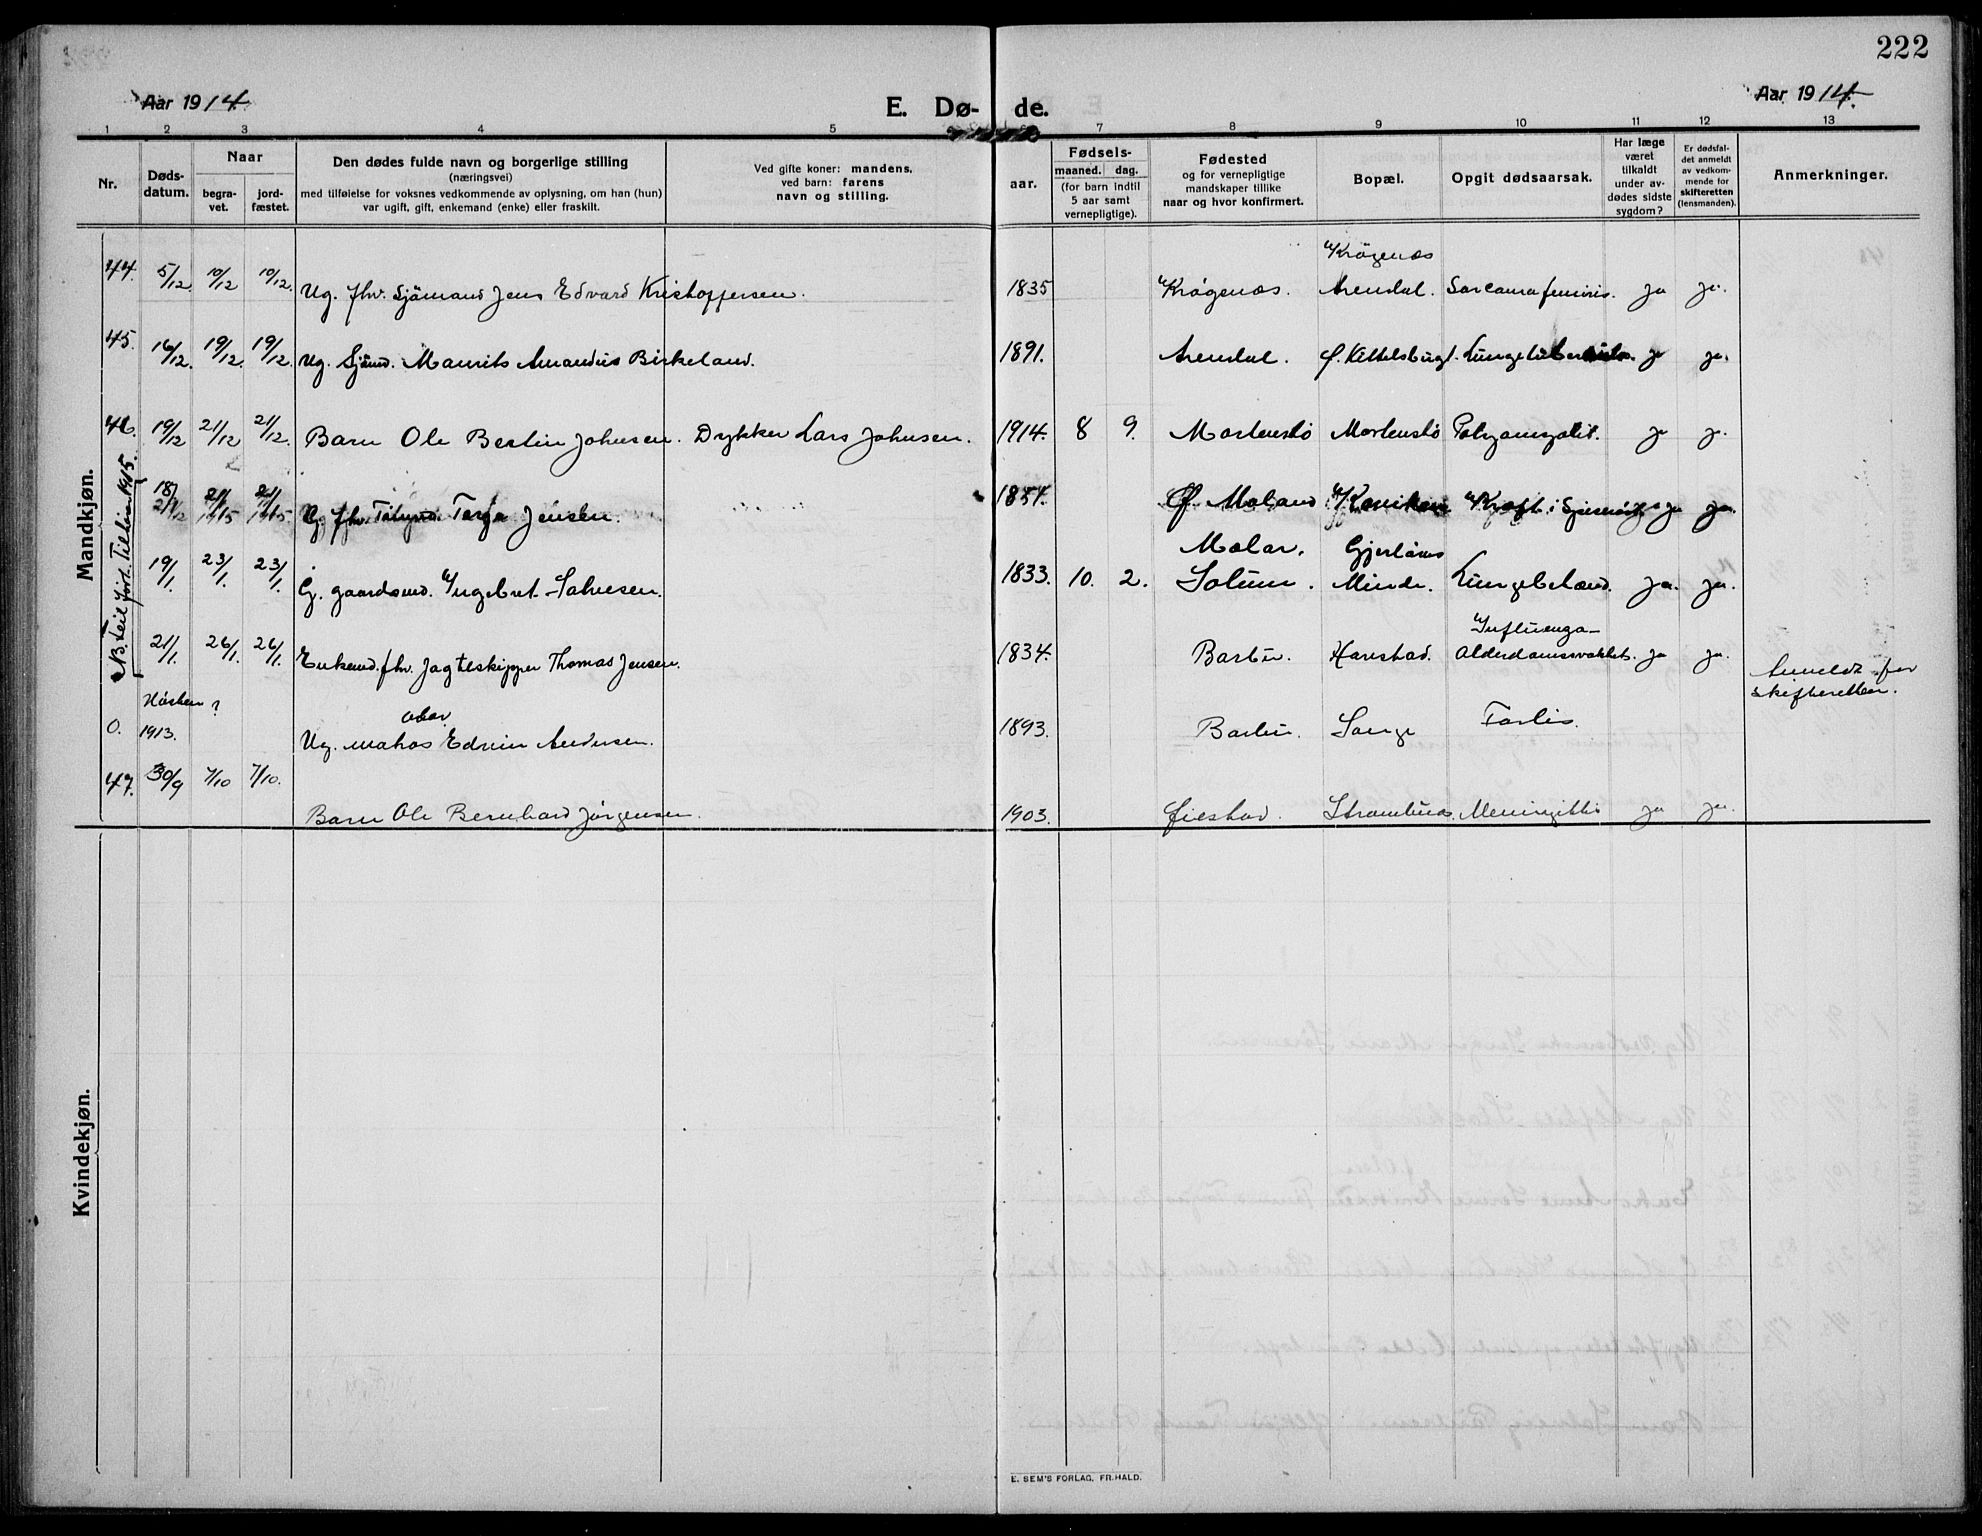 222
Aar 1914.
E. Dø- de.
Aar 1914.
1 2 3 4 5 7 8 9 10 11 12 13
Nr.
Døds-
datum.
Naar
begra-
vet.
jord-
fæstet.
Den dødes fulde navn og borgerlige stilling
(næringsvei)
med tilføielse for voksnes vedkommende av oplysning, om han (hun)
var ugift, gift, enkemand (enke) eller fraskilt.
Ved gifte koner: mandens,
ved barn: farens
navn og stilling.
aar.
Fødsels-
maaned. dag.
(for barn indtil
5 aar samt
vernepligtige).
Fødested
og for vernepligtige
mandskaper tillike
naar og hvor konfirmert.
Bopæl.
Opgit dødsaarsak.
Har læge
været
tilkaldt
under av-
dødes sidste
sygdom?
Er dødsfal-
det anmeldt
av vedkom-
mende for
skifteretten
(lensmanden).
Anmerkninger.
Mandkjøn.
Krøgenæs
44. 5/12 10/12 10/12. Ug. fhv. Sjømand Jens Edvard Kristoffersen. 1835 Krøgenæs. Arendal. Sarcoma femoris. ja ja.
45. 16/12. 19/12. 19/12. Ug. Sjømd. Maurits Amandus Birkeland. 1891. Arendal. P. Kittelsbugt. ja ja.
46. 19/12 21/12 21/12. Barn Ole Bertin Johnsen. Drykker Lars Johnsen. 1914. 8 9. Mortenstø Mortenstø ja ja.
NB. Feil ført. Tilhører 1915.
18/1 21/1 21/1 G. fhv. Terje Jensen. 1854. Ø. Moland Kræft i Spiserør ja ja
Molar. Gjerløvs
19/1. 23/1. 23/1. G. gaardsmd. Ingebret Salvesen. 1833. 10. 2. Solum. Minde. Lungebetænd. ja. ja.
Influenza-
21/1. 26/1. 26/1. Enkemd. fhv. Jagteskipper Thomas Jensen. 1834. Barbu. Harestad. Alderdomssvakhet. ja ja.
Anmeldt for
skifteretten.
Høsten ?
0. 1913. Ug. matros Edvin Andersen. 1893. Barbu. Songe Forlis.
47. 30/9 7/10 7/10. Barn Ole Bernhard Jørgensen. 1903. Øiestad. Strømbues. Meningitis ja ja.
Kvindekjøn.
E. SEM'S FORLAG, FR.HALD.